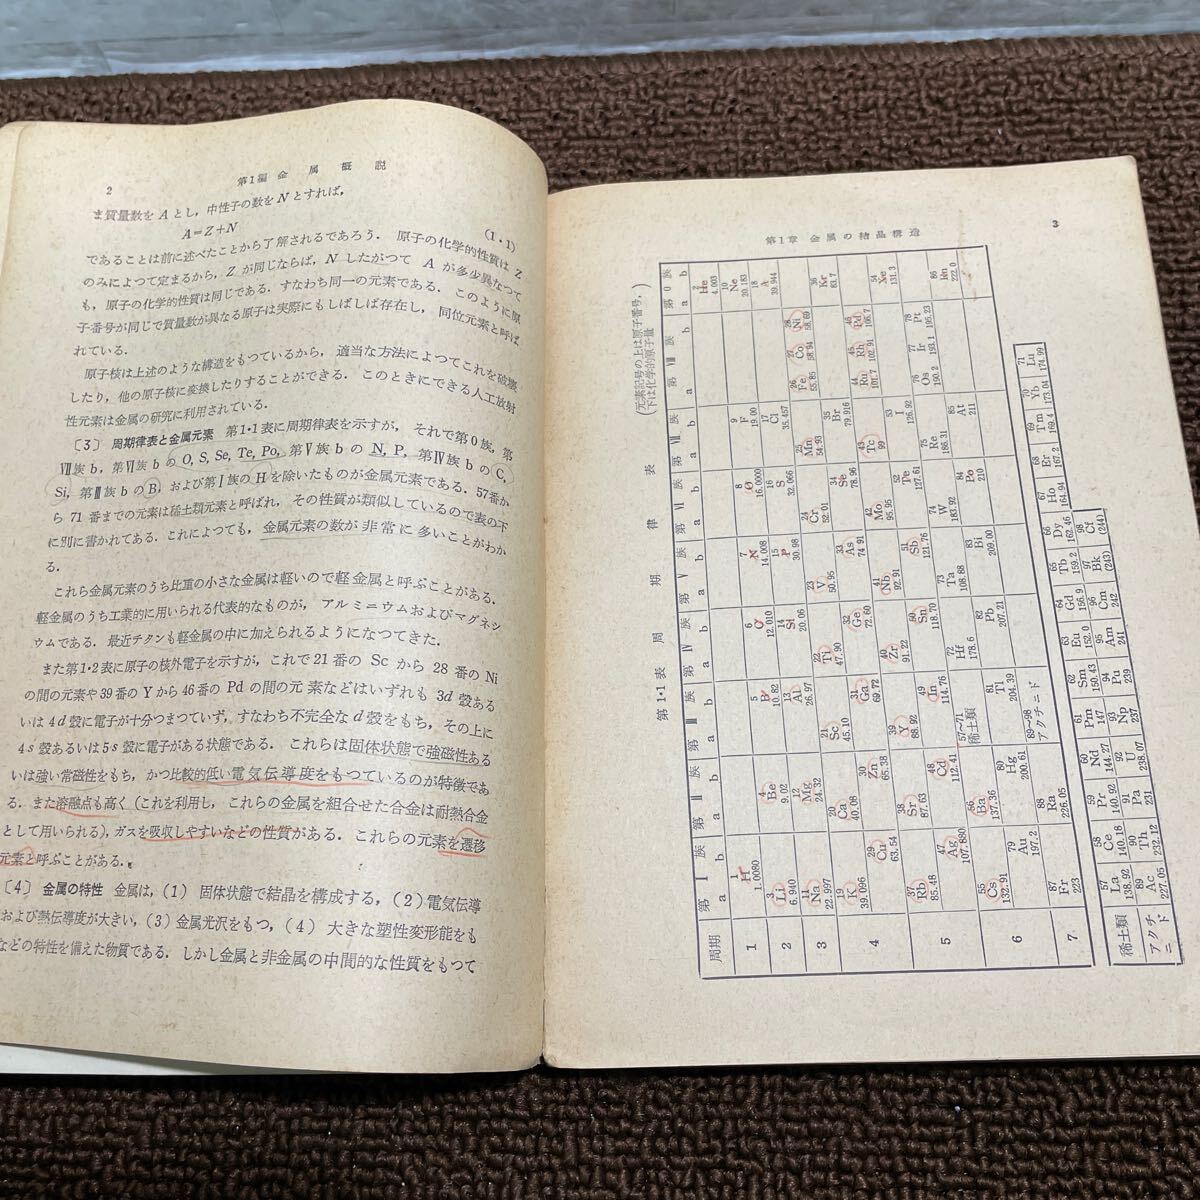 2
第1編 金 属 概 説
ま質量数を A とし，中性子の数を N とすれば，
A=Z+N (1・1)
であることは前に述べたことから了解されるであろう． 原子の化学的性質は Z
のみによつて定まるから，Z が同じならば，N したがつて A が多少異なつて
も，原子の化学的性質は同じである．すなわち同一の元素である．このように原
子番号が同じで質量数が異なる原子は実際にもしばしば存在し，同位元素と呼ば
れている．
原子核は上述のような構造をもつているから，適当な方法によつてこれを破壊
したり，他の原子核に変換したりすることができる．このときにできる人工放射
性元素は金属の研究に利用されている．
〔3〕 周期律表と金属元素 第1・1表に周期律表を示すが，それで第0族，第
Ⅶ族b，第Ⅵ族bの O, S, Se, Te, Po，第Ⅴ族bの N, P，第Ⅳ族bの C,
Si，第Ⅲ族bの B，および第Ⅰ族の H を除いたものが金属元素である．57番か
ら 71 番までの元素は稀土類元素と呼ばれ，その性質が類似しているので表の下
に別に書かれてある．これによつても，金属元素の数が非常に多いことがわか
る．
これら金属元素のうち比重の小さな金属は軽いので軽金属と呼ぶことがある．
軽金属のうち工業的に用いられる代表的なものが，アルミニウムおよびマグネシ
ウムである．最近チタンも軽金属の中に加えられるようになつてきた．
また第1・2表に原子の核外電子を示すが，これで21番の Sc から 28 番の Ni
の間の元素や39番の Y から46番の Pd の間の元素などはいずれも 3d 殻ある
いは 4d 殻に電子が十分つまつていず，すなわち不完全な d 殻をもち，その上に
4s 殻あるいは5s 殻に電子がある状態である．これらは固体状態で強磁性ある
いは強い常磁性をもち，かつ比較的低い電気伝導度をもつているのが特徴であ
る．また溶融点も高く（これを利用し，これらの金属を組合せた合金は耐熱合金
として用いられる），ガスを吸収しやすいなどの性質がある．これらの元素を遷移
元素と呼ぶことがある．
〔4〕 金属の特性 金属は，(1) 固体状態で結晶を構成する，(2) 電気伝導
および熱伝導度が大きい，(3) 金属光沢をもつ，(4) 大きな塑性変形能をも
などの特性を備えた物質である．しかし金属と非金属の中間的な性質をもつて
第1章 金属の結晶構造
3
第 1・1 表 周 期 律 表
(元素記号の上は原子番号，下は化学的原子量)
周期 第Ⅰ族 a b 第Ⅱ族 a b 第Ⅲ族 a b 第Ⅳ族 a b 第Ⅴ族 a b 第Ⅵ族 a b 第Ⅶ族 a b 第Ⅷ族 a b 第0族 a b
1 1 H 1.0080 2 He 4.003
2 3 Li 6.940 4 Be 9.02 5 B 10.82 6 C 12.010 7 N 14.008 8 O 16.0000 9 F 19.00 10 Ne 20.183
3 11 Na 22.997 12 Mg 24.32 13 Al 26.97 14 Si 20.06 15 P 30.98 16 S 32.066 17 Cl 35.457 18 A 39.944
4 19 K 39.096 20 Ca 40.08 21 Sc 45.10 22 Ti 47.90 23 V 50.95 24 Cr 52.01 25 Mn 54.93 26 Fe 55.85 27 Co 58.94 28 Ni 58.69
29 Cu 63.54 30 Zn 65.38 31 Ga 69.72 32 Ge 72.60 33 As 74.91 34 Se 78.96 35 Br 79.916 36 Kr 83.7
5 37 Rb 85.48 38 Sr 87.63 39 Y 88.92 40 Zr 91.22 41 Nb 92.91 42 Mo 95.95 43 Tc 99 44 Ru 101.7 45 Rh 102.91 46 Pd 106.7
47 Ag 107.880 48 Cd 112.41 49 In 114.76 50 Sn 118.70 51 Sb 121.76 52 Te 127.61 53 I 126.92 54 Xe 131.3
6 55 Cs 132.91 56 Ba 137.36 57~71 稀土類 72 Hf 178.6 73 Ta 108.88 74 W 183.92 75 Re 186.31 76 Os 190.2 77 Ir 193.1 78 Pt 195.23
79 Au 197.2 80 Hg 200.61 81 Tl 204.39 82 Pb 207.21 83 Bi 209.00 84 Po 210 85 At 211 86 Rn 222.0
7 87 Fr 223 88 Ra 226.05 89~98 アクチニド
稀土類 57 La 138.92 58 Ce 140.18 59 Pr 140.92 60 Nd 144.27 61 Pm 147 62 Sm 150.43 63 Eu 152.0 64 Gd 156.9 65 Tb 159.2 66 Dy 162.46 67 Ho 164.94 68 Er 167.2 69 Tm 169.4 70 Yb 173.04 71 Lu 174.99
アクチニド 89 Ac 227.05 90 Th 232.12 91 Pa 231 92 U 238.07 93 Np 237 94 Pu 239 95 Am 241 96 Cm 242 97 Bk (243) 98 Cf (244)